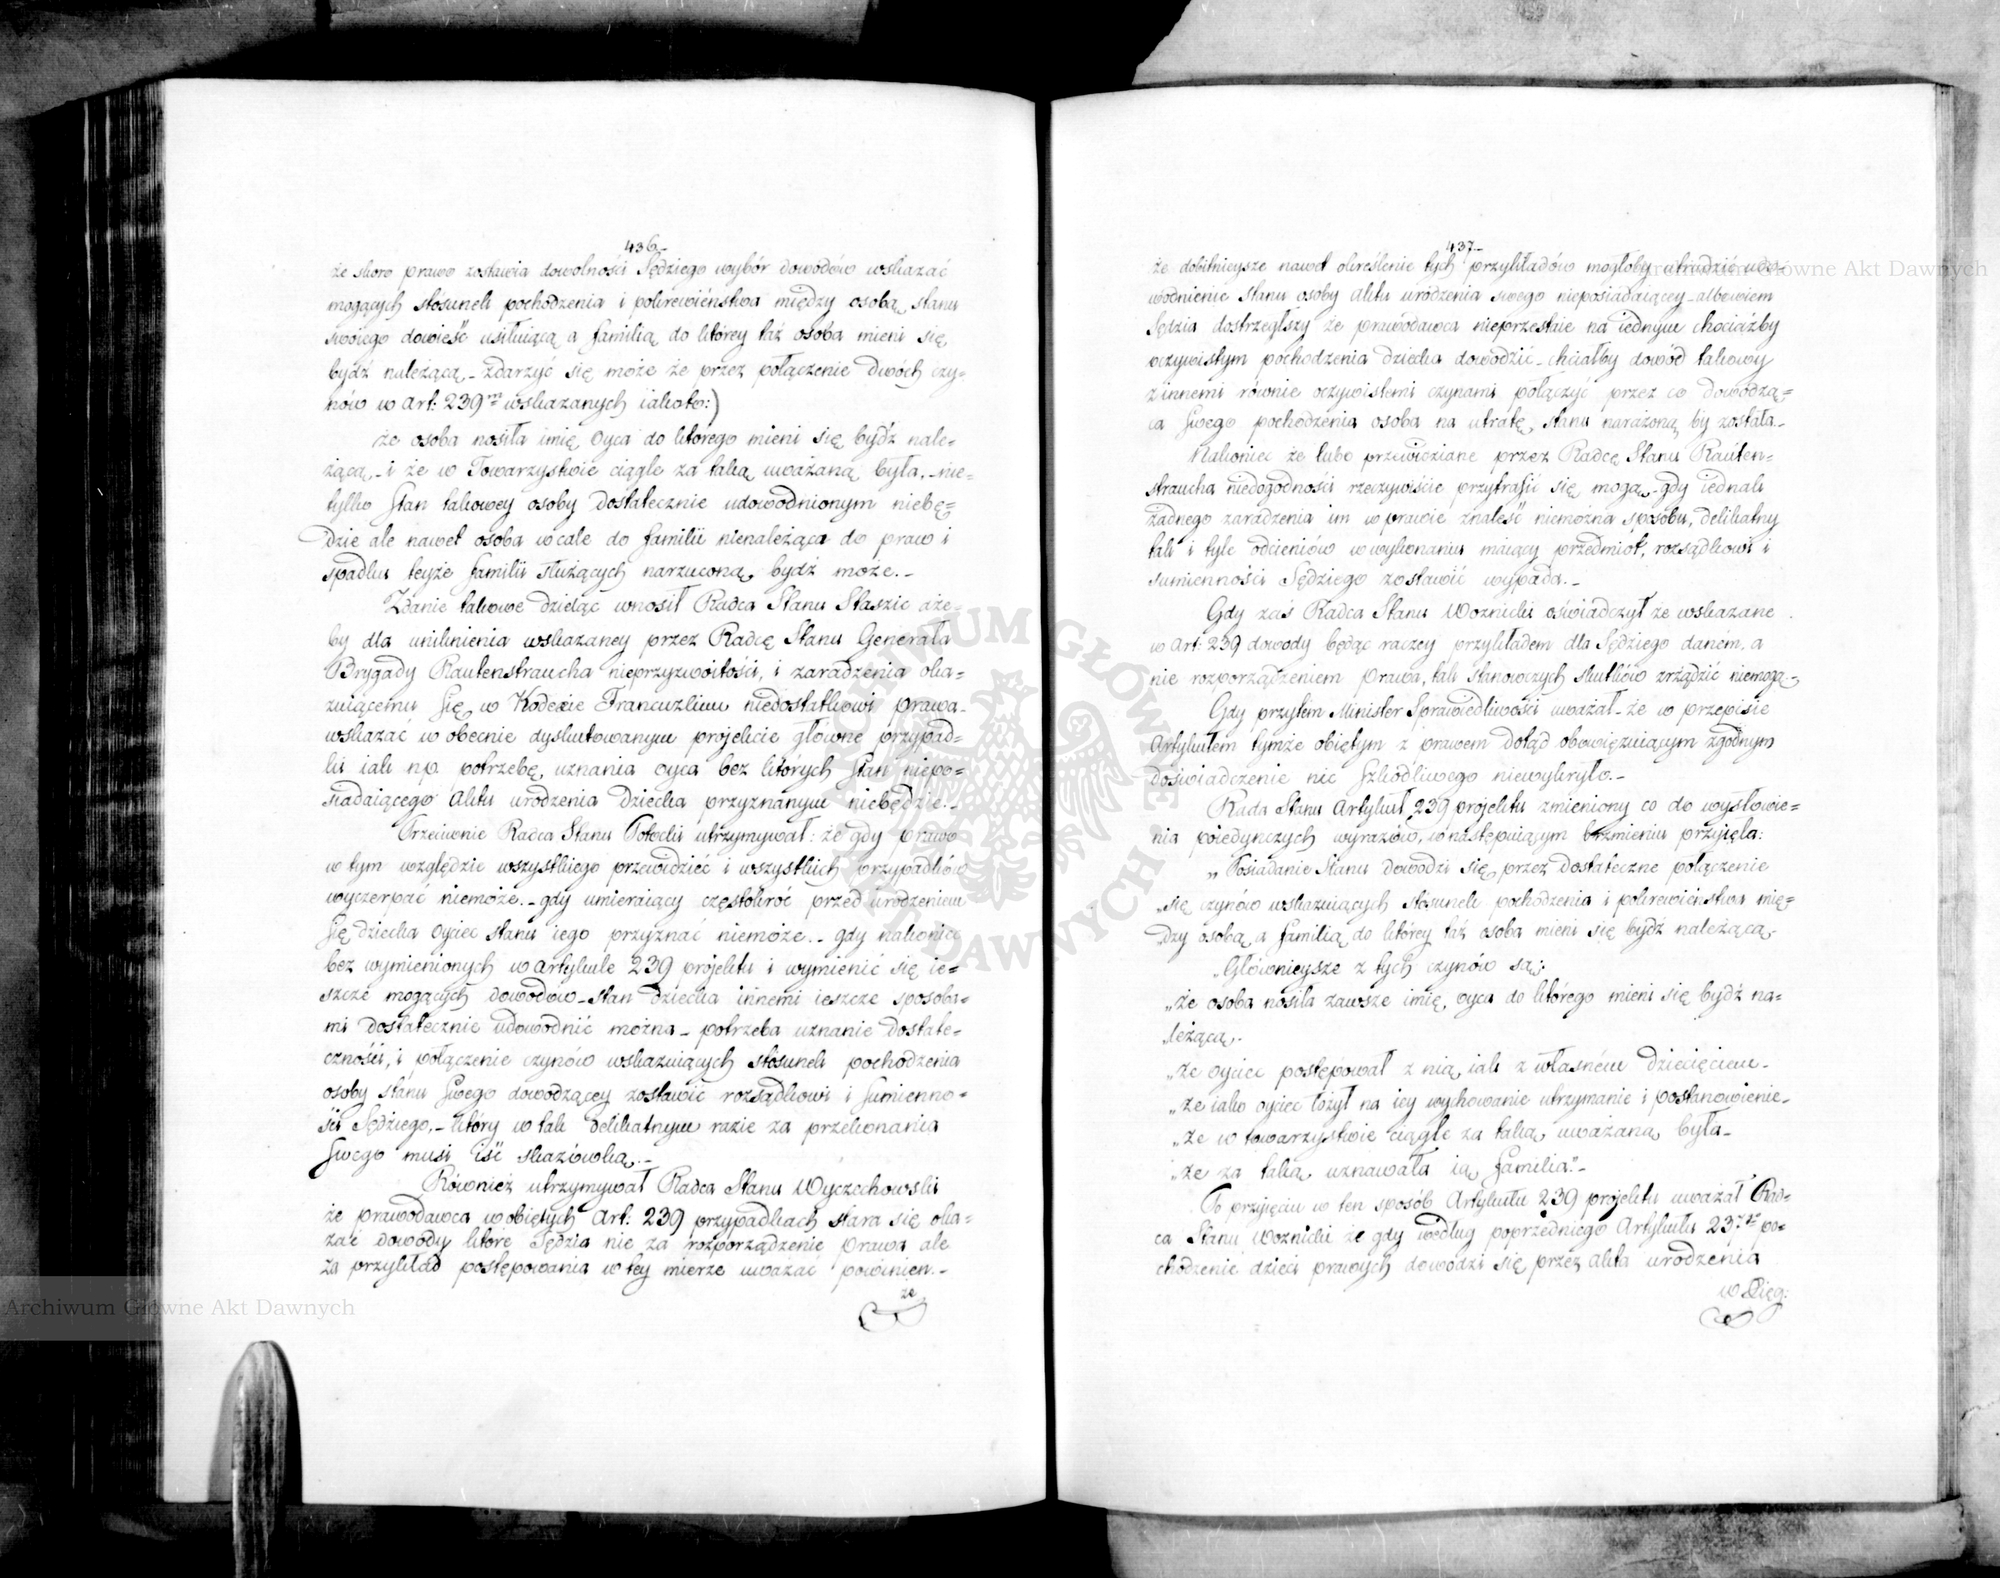 436.
że skoro prawo zostawia dowolności Sędziego wybór dowodów wskazać
mogących stosunek pochodzenia i pokrewieństwa między osobą, stanu
swoiego dowieść usiłuiącą a familią do którey taż osoba mieni się
bydź należącą. Zdarzyć się może że przez połączenie dwóch czy-
nów w Art: 239m wskazanych iakoto:)
że osoba nosiła imię Oyca do którego mieni się bydź nale-
żącą, i że w Towarzystwie ciągle za taką uważaną była, nie-
tylko stan takowey osoby dostatecznie udowodnionym niebę-
dzie ale nawet osoba wcale do familii nienależąca do praw i
spadku teyże familii służących narzuconą bydź może.-
Zdanie takowe dzieląc wnosił Radca Stanu Staszic aże-
by dla uniknienia wskazaney przez Radcę Stanu Generała
Brygady Rautenstraucha nieprzyzwoitości, i zaradzenia oka-
zuiącemu się w Kodexie Francuzkim niedostatkowi prawa
wskazać w obecnie dyskutowanym projekcie główne przypad-
ki iak np. potrzebę uznania oyca bez których stan niepo-
siadaiącego Aktu urodzenia dziecka przyznanym niebędzie.-
Przeciwnie Radca Stanu Potocki utrzymywał: że gdy prawo
w tym względzie wszystkiego przewidzieć i wszystkich przypadków
wyczerpać niemoże.- gdy umieraiący częstokroć przed urodzeniem
się dziecka Oyciec stanu iego przyznać niemoże.- gdy nakoniec
bez wymienionych w artykule 239 projektu i wymienić się ie-
szcze mogących dowodów - stan dziecka innemi ieszcze sposoba-
mi dostatecznie udowodnić można - potrzeba uznanie dostate-
czności, i połączenie czynów wskazuiących stosunek pochodzenia
osoby stanu swego dowodzącey zostawić rozsądkowi i sumienno-
ści Sędziego,- który w tak delikatnym razie za przekonania
swego musi iść skazówką.-
Również utrzymywał Radca Stanu Wyczechowski
że prawodawca w obiętych Art: 239 przypadkach stara się oka-
zać dowody które Sędzia nie za rozporządzenie prawa ale
za przykład postępowania w tey mierze uważać powinien.-
że
437.
że dobitnieysze nawet określenie tych przykładów mogłoby utrudzić udo-
wodnienie stanu osoby Aktu urodzenia swego nieposiadaiącey - albowiem
Sędzia dostrzegłszy że prawodawca nieprzestaie na iednym chociażby
oczywistym pochodzenia dziecka dowodzić - chciałby dowód takowy
z innemi równie oczywistemi czynami połączyć przez co dowodzą-
ca swego pochodzenia osoba na utratę, stanu narażoną by została.-
Nakoniec że lubo przewidziane przez Radcę Stanu Rauten-
straucha niedogodności rzeczywiście przytrafić się mogą - gdy iednak
żadnego zaradzenia im w prawie znaleść niemożna sposobu, delikatny
tak i tyle odcieniów w wykonaniu maiący przedmiot, rozsądkowi i
sumienności Sędziego zostawić wypada.-
Gdy zaś Radca Stanu Woznicki oświadczył że wskazane
w Art: 239 dowody będąc raczey przykładem dla Sędziego danem, a
nie rozporządzeniem prawa, tak stanowczych skutków zrządzić niemogą.-
Gdy przytem Minister Sprawiedliwości uważał - że w przepisie
Artykułem tymże obiętym z prawem dotąd obowięzuiącym zgodnym
doświadczenie nic szkodliwego niewykryło.-
Rada Stanu Artykuł 239 projektu zmieniony co do wysłowie-
nia poiedynczych wyrazów, w następuiącym brzmieniu przyjęła:
„Posiadanie Stanu dowodzi się przez dostateczne połączenie
„się czynów wskazuiących stosunek pochodzenia i pokrewieństwa mię-
„dzy osobą, a familią do którey taż osoba mieni się bydź należącą.
„Głównieysze z tych czynów są:
„że osoba nosiła zawsze imię, oyca do którego mieni się bydź na-
„leżącą.
„że oyciec postępował z nią iak z własném dziecięciem.-
„że iako oyciec łożył na iey wychowanie utrzymanie i postanowienie.-
„że w towarzystwie ciągle za taką uważaną była.-
„że za taką uznawała ią familia."-
Po przyjęciu w ten sposób Artykułu 239 projektu uważał Rad-
ca Stanu Woznicki że gdy według poprzedniego Artykułu 237go po-
chodzenie dzieci prawych dowodzi się przez Akta urodzenia
w Xięg:
Archiwum Główne Akt Dawnych
Archiwum Główne Akt Dawnych
ARCHIWUM GŁÓWNE AKT DAWNYCH